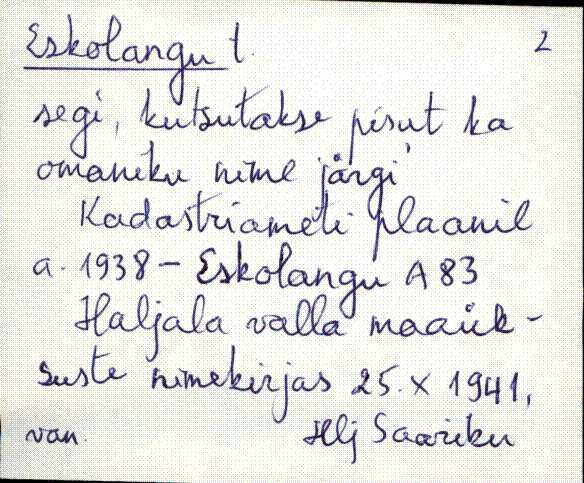 Eskolangu t. 2
segi, kutsutakse pisut ka
omaniku nime järgi
Kadastriameti plaanil
a. 1938 - Eskolangu A 83
Haljala valla maaük-
suste nimekirjas 25. X 1941,
van. Hlj Saariku